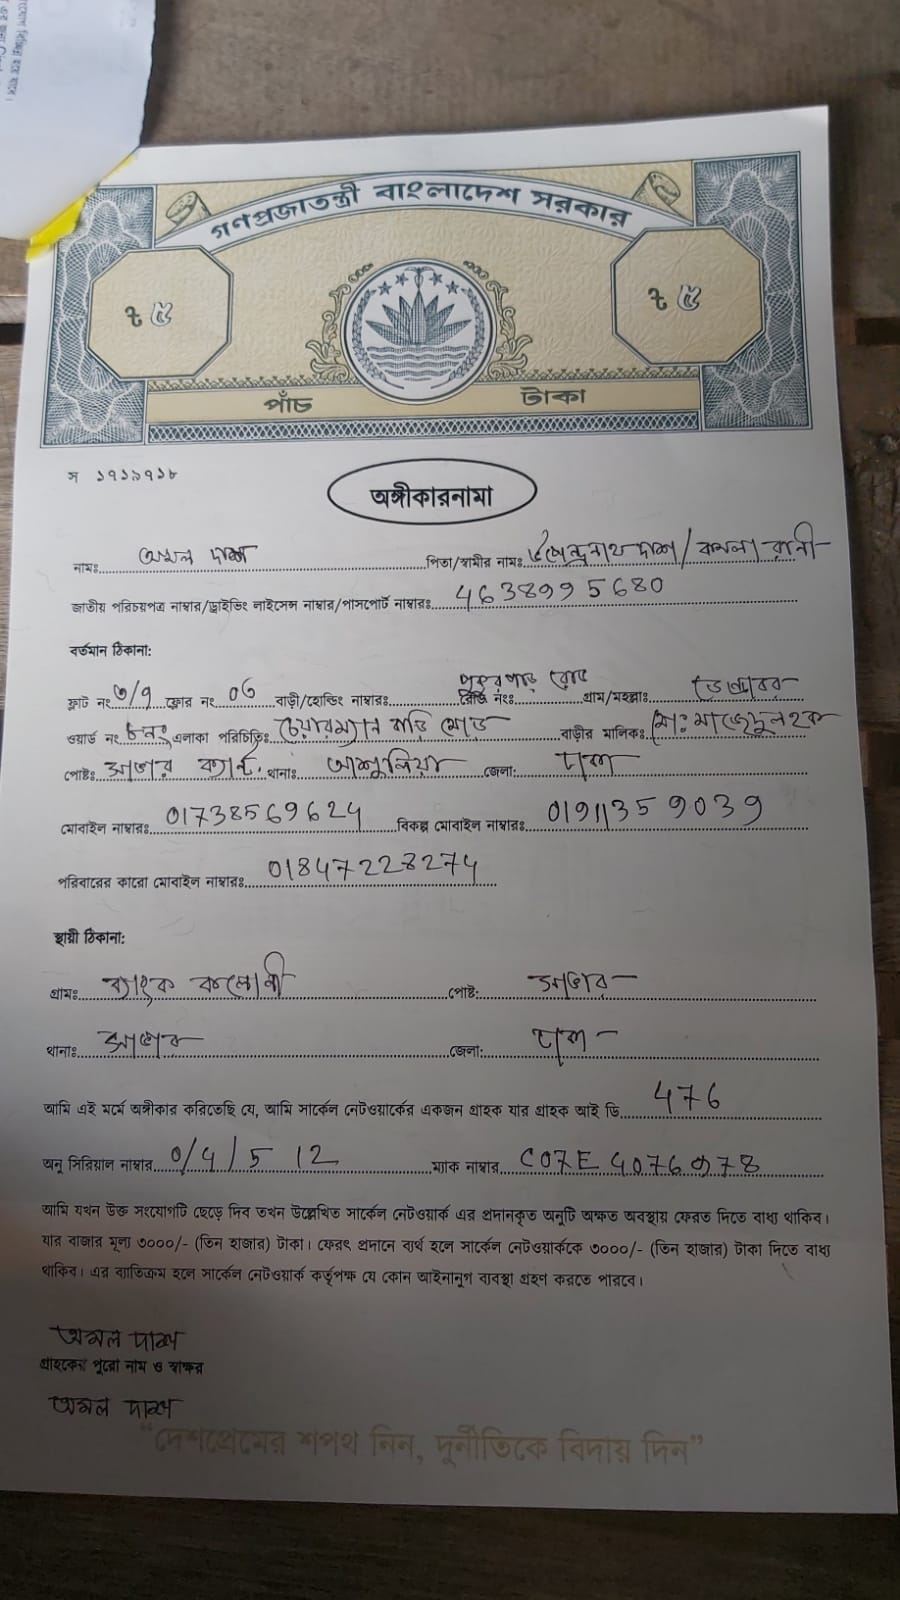 গণপ্রজাতন্ত্রী বাংলাদেশ সরকার
৳ ৫ ৳ ৫
পাঁচ টাকা
স ১৭১৯৭১৮
অঙ্গীকারনামা
নামঃ অমল দাশ পিতা/স্বামীর নামঃ দাশ / কমলা রানী
জাতীয় পরিচয়পত্র নাম্বার/ড্রাইভিং লাইসেন্স নাম্বার/পাসপোর্ট নাম্বারঃ 4638995680
বর্তমান ঠিকানা:
ফ্লাট নং ৩/৭ ফ্লোর নং ০৩ বাড়ী/হোল্ডিং নাম্বারঃ রোড নংঃ পুকুরপাড় রোড গ্রাম/মহল্লাঃ
ওয়ার্ড নং ৮নং এলাকা পরিচিতিঃ চেয়ারম্যান বাড়ি মোড় বাড়ীর মালিকঃ মোঃ মাজেদুল হক
পোষ্টঃ সাভার ক্যান্ট. থানাঃ আশুলিয়া জেলা: ঢাকা
মোবাইল নাম্বারঃ 01738569624 বিকল্প মোবাইল নাম্বারঃ 01911359039
পরিবারের কারো মোবাইল নাম্বারঃ 01847228274
স্থায়ী ঠিকানা:
গ্রামঃ ব্যাংক কলোনী পোষ্ট: সাভার
থানাঃ সাভার জেলা: ঢাকা
আমি এই মর্মে অঙ্গীকার করিতেছি যে, আমি সার্কেল নেটওয়ার্কের একজন গ্রাহক যার গ্রাহক আই ডি 476
অনু সিরিয়াল নাম্বার 0/4/5 12 ম্যাক নাম্বার C07E
আমি যখন উক্ত সংযোগটি ছেড়ে দিব তখন উল্লেখিত সার্কেল নেটওয়ার্ক এর প্রদানকৃত অনুটি অক্ষত অবস্থায় ফেরত দিতে বাধ্য থাকিব।
যার বাজার মূল্য ৩০০০/- (তিন হাজার) টাকা। ফেরৎ প্রদানে ব্যর্থ হলে সার্কেল নেটওয়ার্ককে ৩০০০/- (তিন হাজার) টাকা দিতে বাধ্য
থাকিব। এর ব্যতিক্রম হলে সার্কেল নেটওয়ার্ক কর্তৃপক্ষ যে কোন আইনানুগ ব্যবস্থা গ্রহণ করতে পারবে।
অমল দাশ
গ্রাহকের পুরো নাম ও স্বাক্ষর
অমল দাশ
“দেশপ্রেমের শপথ নিন, দুর্নীতিকে বিদায় দিন”